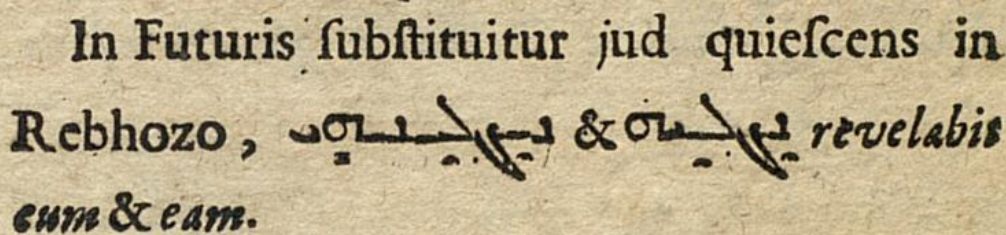 In Futuris ſubſtituitur jud quieſcens in
Rebhozo, & ܢܓܠܝܗ revelabit
eum & eam.